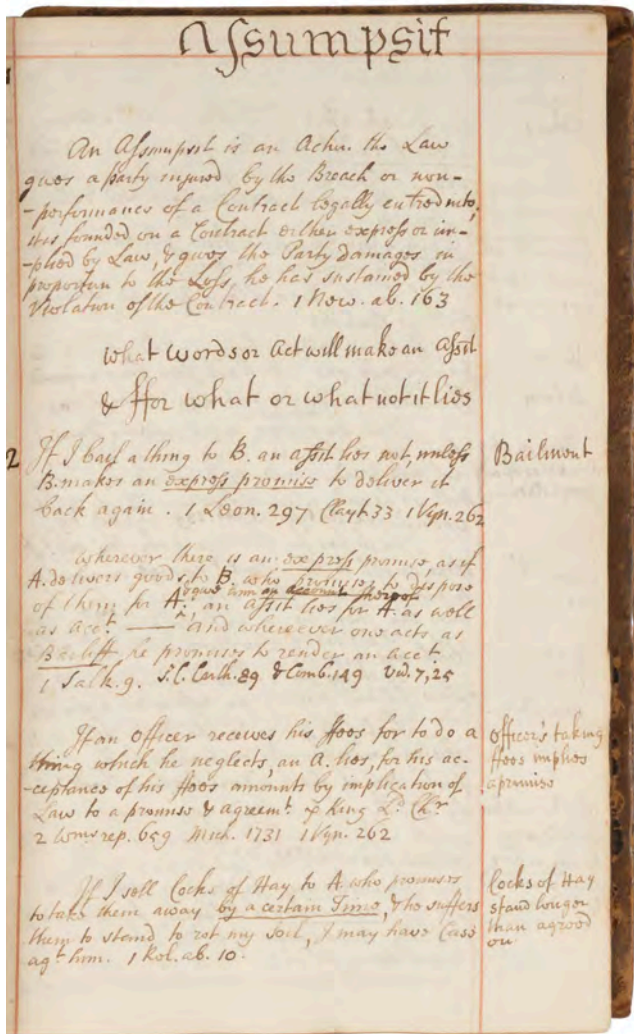 Assumpsit
An Assumpsit is an Action the Law
gives a party injured by the Breach or non-
-performance of a Contract legally entred into,
it is founded on a Contract either express or im-
-plied by Law, & gives the Party damages in
proportion to the Loss, he has sustained by the
Violation of the Contract. 1 New. ab. 163
what words or Act will make an Assit
& ffor what or what not it lies
2 If I bail a thing to B. an assit lies not, unless
B. makes an express promise to deliver it
back again. 1 Leon. 297 Clayt. 33 1 Vyn. 262
Bailment
Wherever there is an express promise, as if
A. delivers goods to B. who promises to dispose
& give him an account thereof
of them for A. an assit lies for A. as well
as acct. — and whereever one acts as
Bailiff he promises to render an acct
1 Salk. 9. S.C. Carth. 89 & Comb. 149 vid. 7, 25
If an officer receives his ffees for to do a
thing which he neglects, an A. lies, for his ac-
-ceptance of his ffees amounts by implication of
Law to a promise & agreemt. p King Ld. Chr
2 Wms rep. 659 Mich. 1731 1 Vyn. 262
officer's taking
ffees implies
a promise
If I sell Cocks of Hay to A. who promises
to take them away by a certain Time, & he suffers
them to stand to rot my soil, I may have Case
agt. him. 1 Rol. ab. 10.
Cocks of Hay
stand longer
than agreed
on